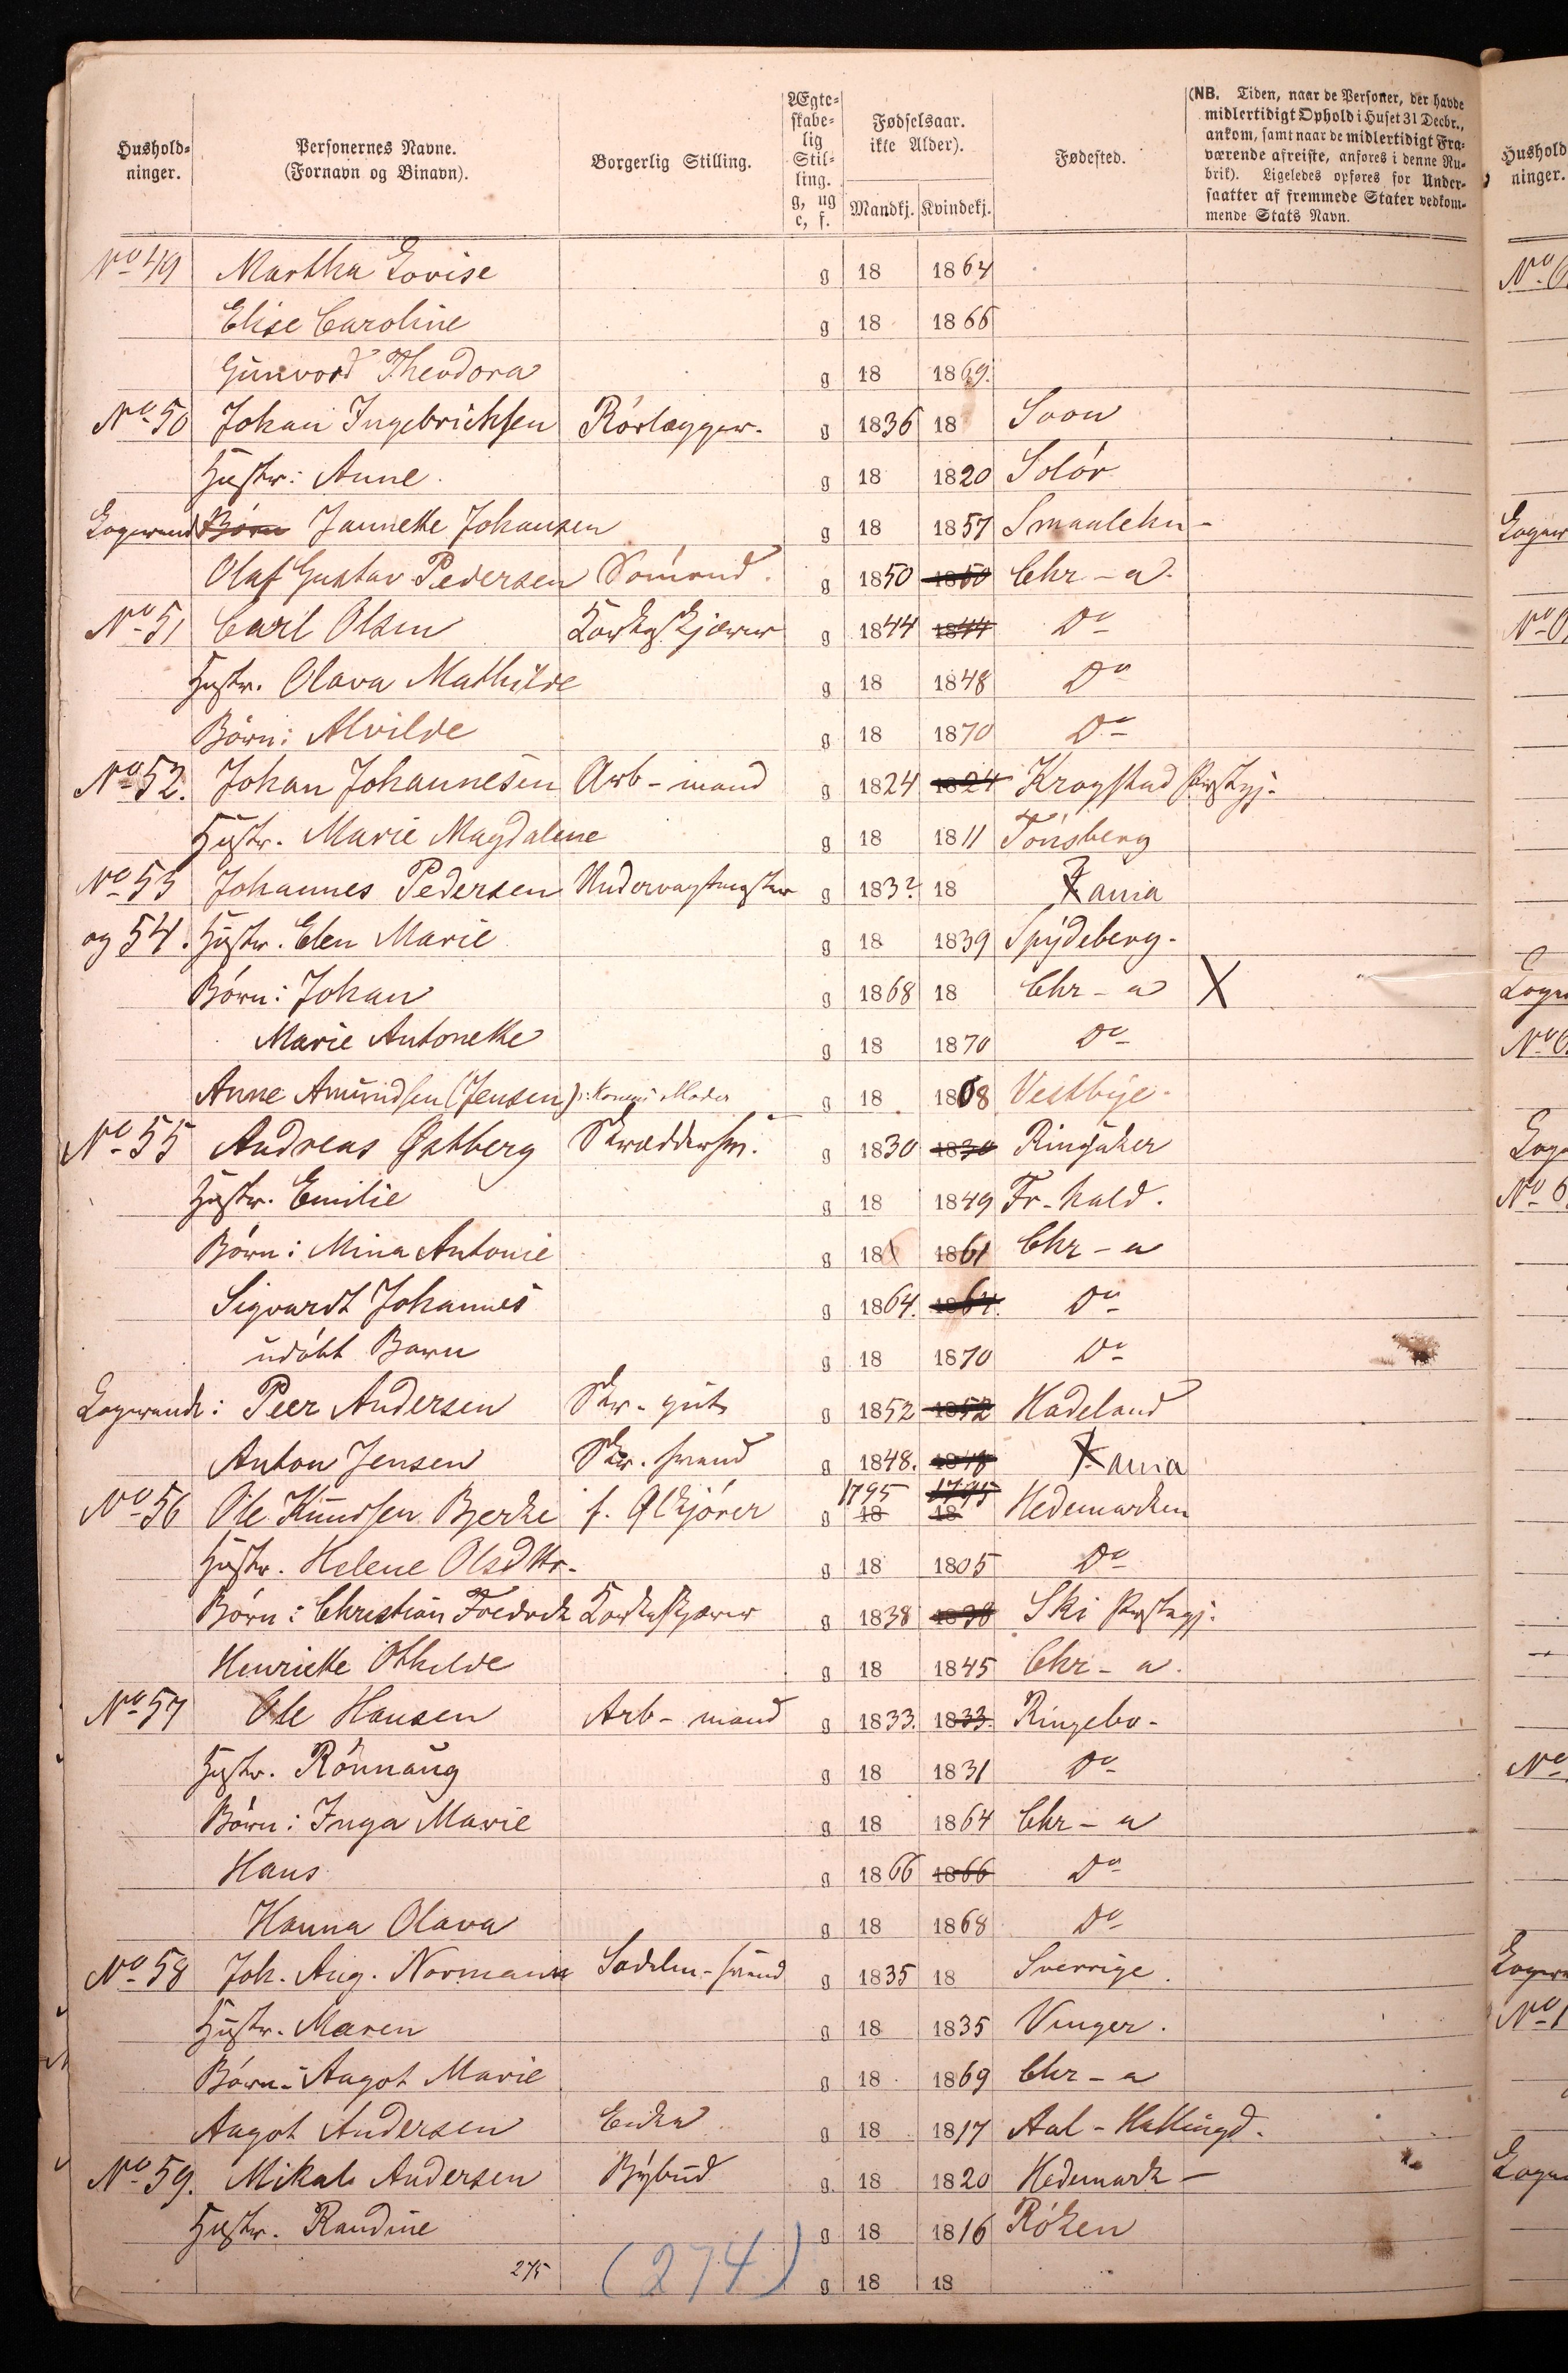 Hushold-
ninger.
Personernes Navne.
(Fornavn og Binavn).
Borgerlig Stilling.
Ægte-
skabe-
lig
Stil-
ling.
g, ug
e, f.
Fødselsaar.
ikke Alder).
Mandkj. Kvindekj.
Fødested.
(NB. Tiden, naar de Personer, der havde
midlertidigt Ophold i Huset 31 Decbr.,
ankom, samt naar de midlertidigt Fra-
værende afreiste, anføres i denne Ru-
brik). Ligeledes opføres for Under-
saatter af fremmede Stater vedkom-
mende Stats Navn.
Hushold
ninger.
No 49 Martha Lovise g 18 1864
Elise Caroline g 18 1866
Gunvord Theodora g 18 1869.
No 50 Johan Ingebrichsen Rörlægger. g 1836 18 Soon
Hustr: Anne. g 18 1820 Solör
Logerend Börn Jannette Johansen g 18 1857 Smaalehn-
Olaf Gustav Pedersen Sömand. g 1850 1850 Chr-a.
No 51 Carl Olsen Korkeskjærer g 1844 1844 Do
Hustr. Olava Mathilde g 18 1848 Do
Börn: Alvilde g 18 1870 Do
No 52. Johan Johannesen Arb-mand g 1824 1824 Krogstad Prstgj.
Hustr. Marie Magdalene g 18 1811 Tönsberg
No 53 Johannes Pedersen g 183? 18 Xania
og 54. Hustr. Elen Marie g 18 1839 Spydeberg.
Börn: Johan g 1868 18 Chr-a X
Marie Antonette g 18 1870 Do
Anne Amundsen (Jensen) Konens Moder g 18 1808 Vestbye.
No 55 Andreas Østberg Skræddersv. g 1830 1830 Ringsaker
Hustr. Emilie g 18 1849 Fr-hald.
Börn: Mina Antonie g 18 1861 Chr-a
Sigvardt Johannes g 1864. 1864. Do
udöbt Barn g 18 1870 Do
Logerende: Peer Andersen Skr-gut g 1852 1852 Hadeland
Anton Jensen Skr. svend g 1848. 1848 Xania
No 56 Ole Knudsen Bjerke f. Ølkjörer g 1795 18 1795 18 Hedemarken
Hustr. Helene Olsdttr. g 18 1805 Do
Börn: Christian Fredrik Korkeskjærer g 1838 1838 Ski Prstegj.
Henriette Othilde g 18 1845 Chr-a.
No 57 Ole Hansen Arb-mand g 1833. 1833. Ringebo-
Hustr. Rönnaug g 18 1831 Do
Börn: Inga Marie g 18 1864 Chr-a
Hans g 1866 1866 Do
Hanna Olava g 18 1868 Do
No 58 Joh. Aug. Normann Sadelm-svend g 1835 18 Sverrige.
Hustr. Maren g 18 1835 Vinger.
Börn: Aagot Marie g 18 1869 Chr-a
Aagot Andersen Enke g 18 1817 Aal-Hallingd.
No 59. Mikal Andersen Bybud g. 18 1820 Hedemark-
Hustr. Randine g 18 1816 Röken
275 (274) g 18 18